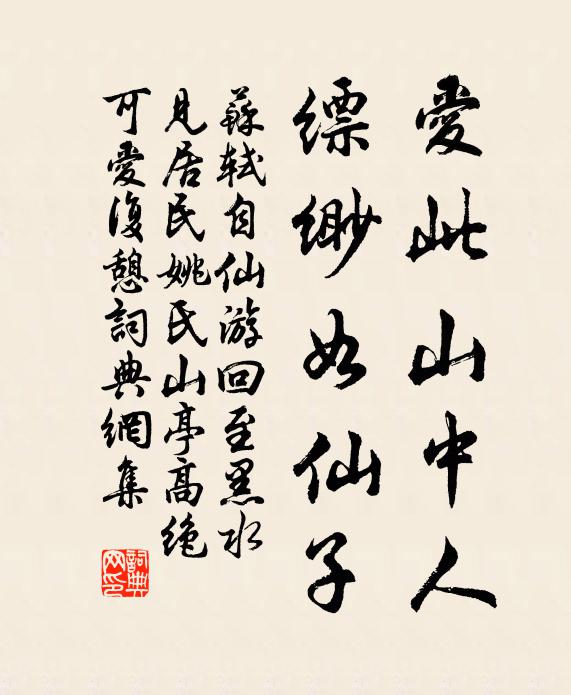 愛此山中人
縹緲如仙子
蘇軾自仙游回至黑水
見居民姚氏山亭高绝
可愛復憩詞典網集
詞典
网印